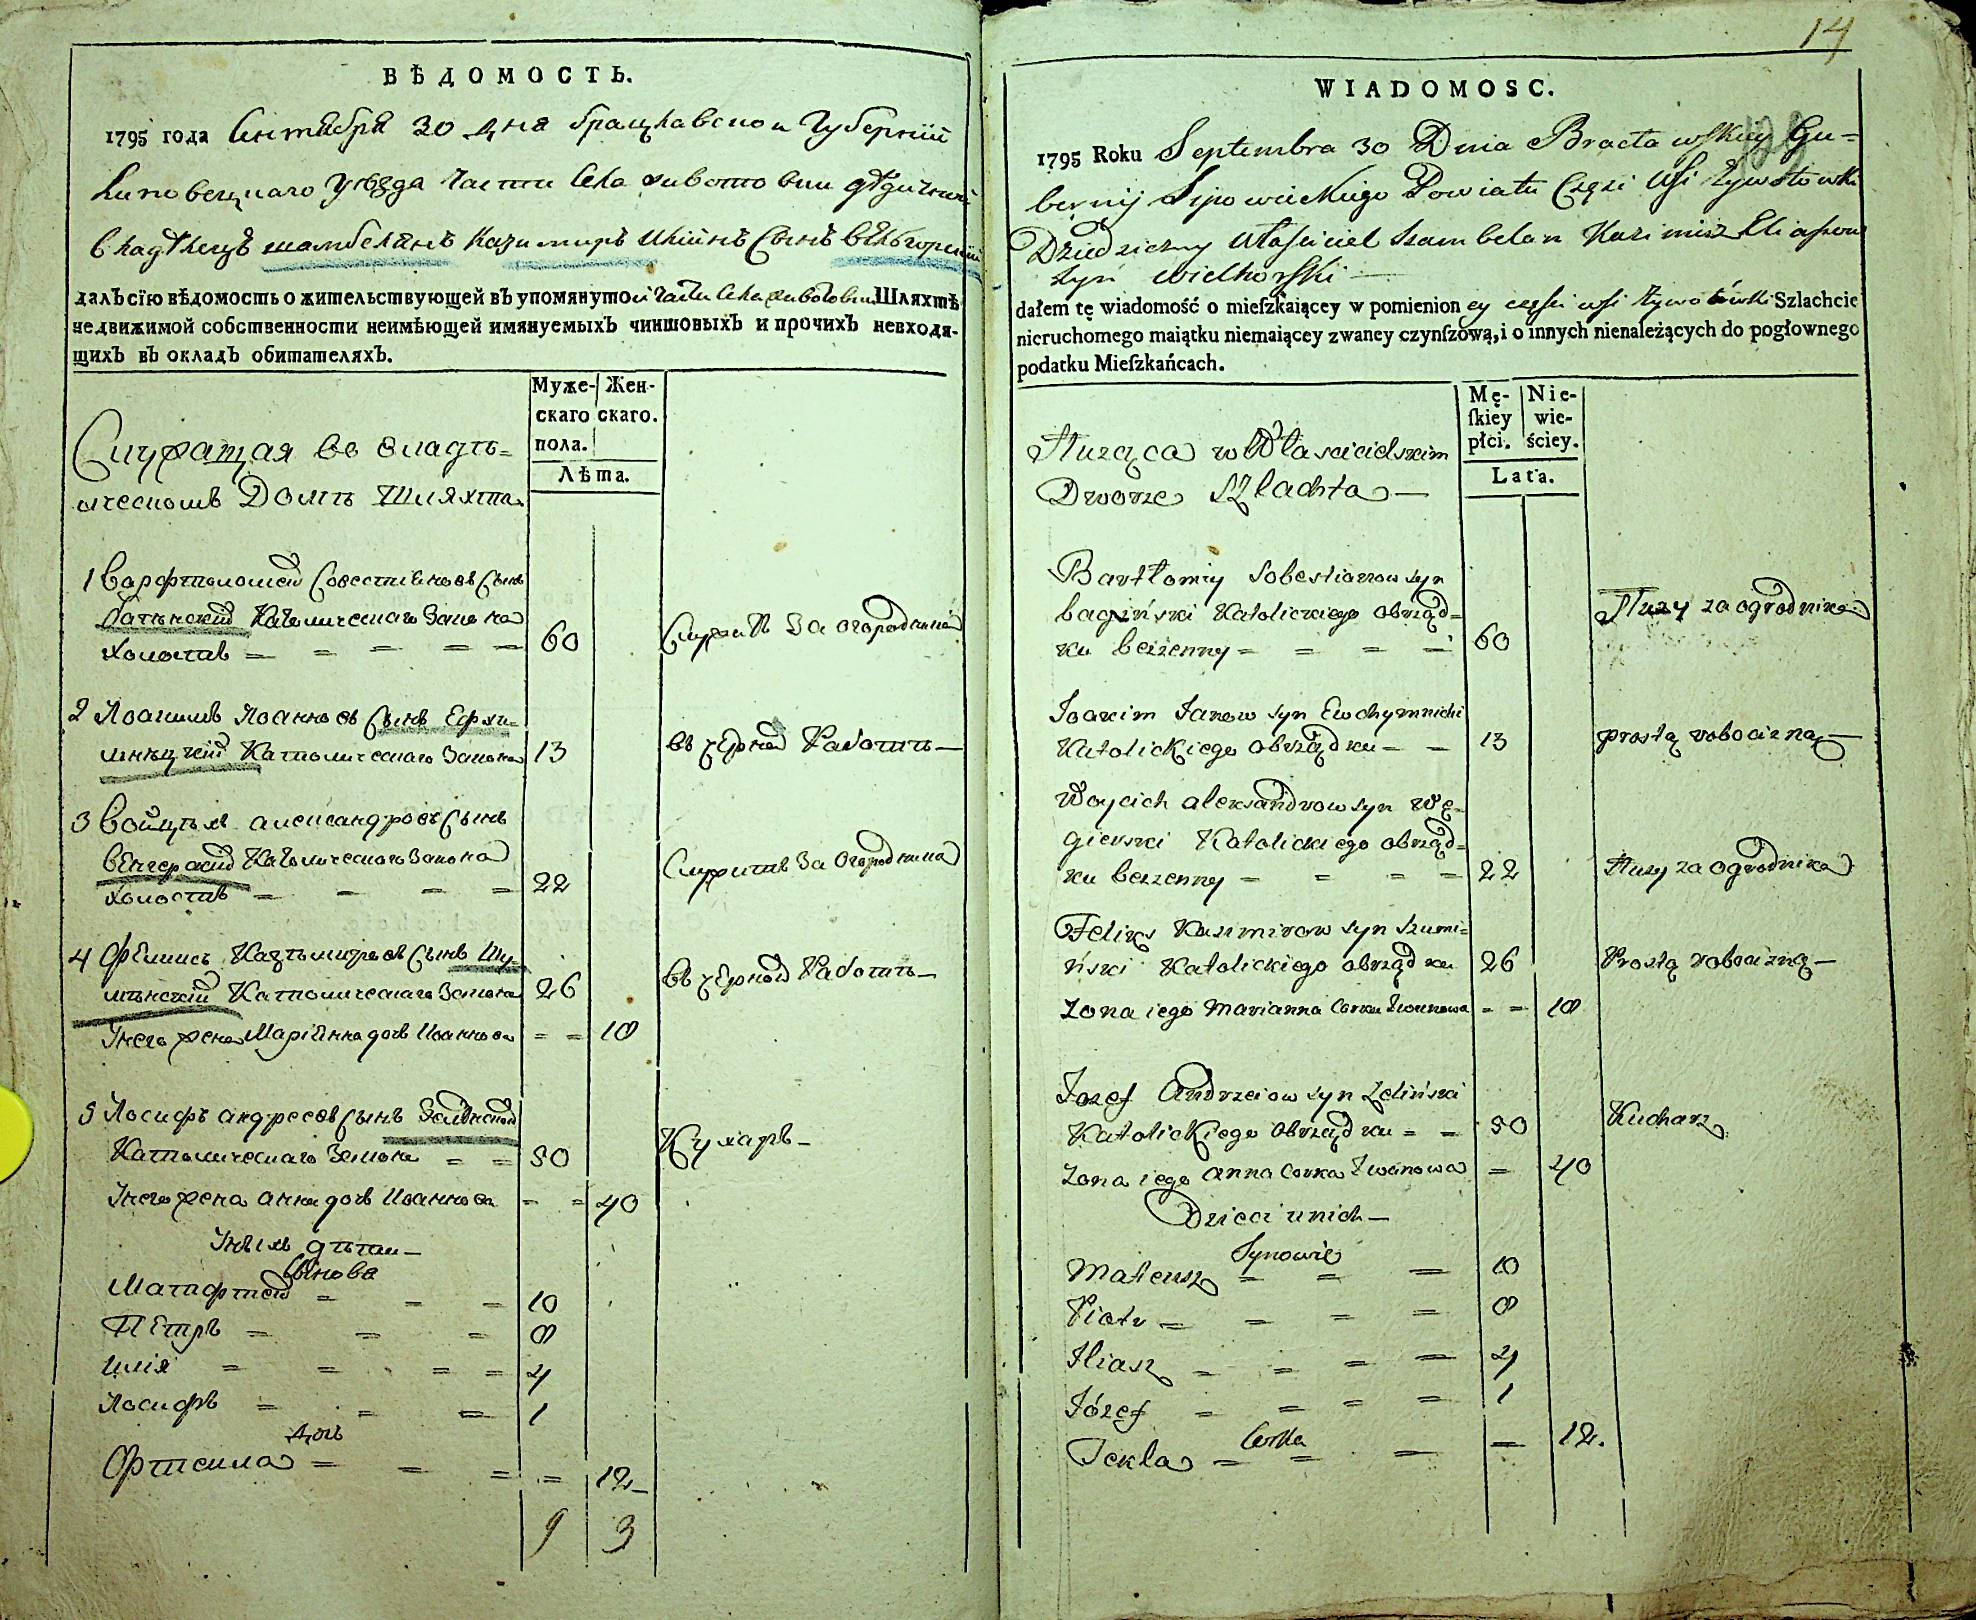 ВѢДОМОСТЬ.
1795 года Сентября 30 дня Брацлавской Губернїи
Липовецкаго уѣзда части села животовки дѣдичный
владѣлецъ шамбелянъ Казимиръ Илїинъ Сынъ Вельгорскїй
далъ сїю вѣдомость о жительствующей въ упомянутой части села животовки Шляхтѣ
недвижимой собственности неимѣющей имянуемыхъ чиншовыхъ и прочихъ невходя-
щихъ въ окладъ обитателяхъ.
Муже- Жен-
скаго скаго.
пола.
Лѣта.
Служащая во владѣ-
льческомъ Домѣ Шляхта
1 Варфоломей Совестияновъ Сынъ
Багинский Католическаго Закона
холостъ 60 Служитъ За огородника
2 Иоакимъ Иоанновъ Сынъ Ефхи-
мнѣцкий Католическаго Закона 13 въ черной Работѣ
3 Войцѣхъ александровъ Сынъ
Венгерский Католическаго Закона
холостъ 22 Служитъ За Огородника
4 Феликсъ Казѣмировъ Сынъ Шу-
минский Католическаго Закона 26 въ черной Работѣ
У него жена Марїянна дочь Иваннова 18
5 Иосифъ андреевъ Сынъ Зелинский
Католическаго Закона 50 Кухаръ
У него жена анна дочь Иваннова 40
У нихъ дѣти
Сынова
Матфей 10
Петръ 8
илїя 4
Иосифъ 1
Дочь
Фтекла 12
9 3
14
WIADOMOSC.
1795 Roku Septembra 30 Dnia Bracławskiey Gu-
bernij Lipowieckiego Powiatu Częśi Wsi Żywotowki
Dziedziczny Właściciel Szambelan Kazimirz Eliaszow
syn Wielhorski
dałem tę wiadomość o mieſzkaiącey w pomienioney części wsi żywotówki Szlachcie
nieruchomego maiątku niemaiącey zwaney czynſzową, i o innych nienależących do pogłownego
podatku Mieſzkańcach.
Mę- Nie-
ſkiey wie-
płci. ściey.
Lata.
Służąca w Właścicielskim
Dworze Szlachta
Bartłomiy Sobestianow syn
bagiński Katolickiego obrząd-
ku bezżenny 60 Służy za ogrodnika
Joakim Janow syn Ewchymnicki
Katolickiego obrządku 13 prostą robocizną
Woycich alexandrow syn Wę-
gierski Katolickiego obrząd-
ku bezżenny 22 Służy za ogrodnika
Felix Kazimirow syn szumi-
ński Katolickiego obrządku 26 Prostą robocizną
Zona iego Marianna Corka Iwanowa 18
Jozef Andrzeiow syn Zeliński
Katolickiego obrządku 50 Kucharz
Zona iego anna Corka Iwanowa 40
Dzieci u nich
Synowie
Mateusz 10
Piotr 8
Iliasz 4
Józef 1
Corka
Tekla 12.